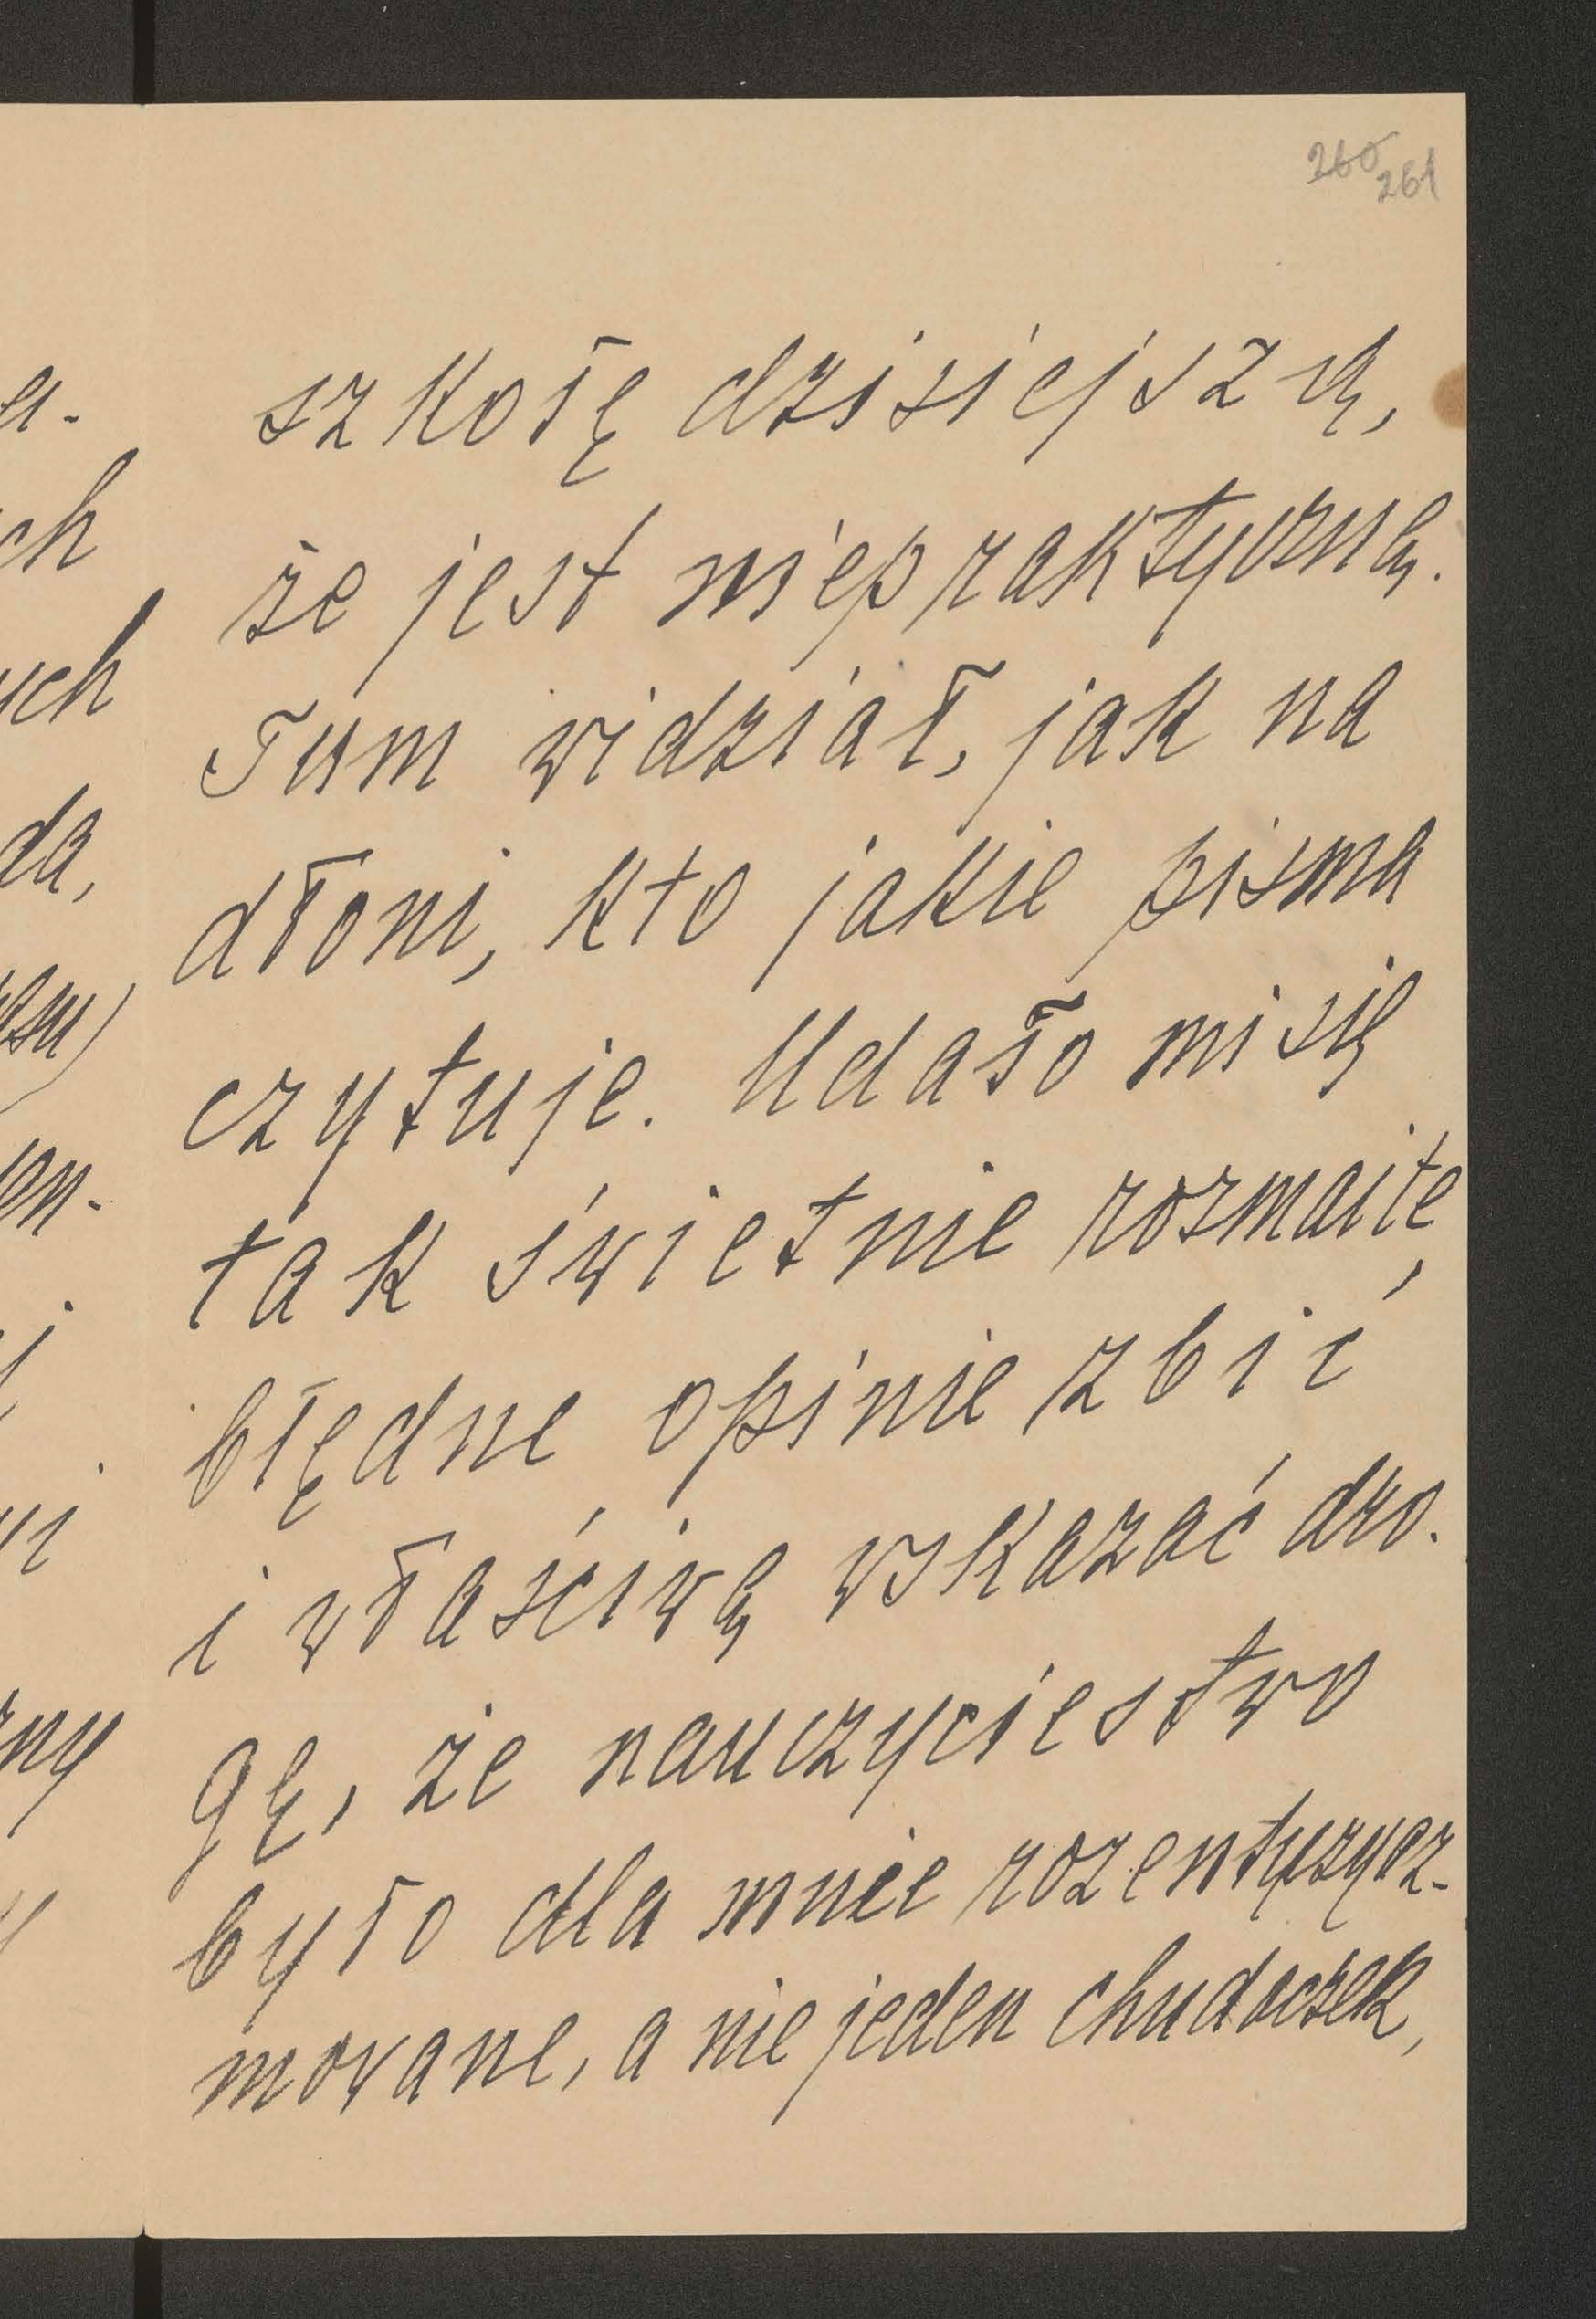 260 261
a-
ch
szkołę dzisiejszą,
że jest niepraktyczną.
uch
Tum vidział, jak na
da,
dłoni, kto jakie pisma
czytuje. Udało mi się
en-
tak świetnie rozmaite,
błędne opinie zbić
i vłaścivą vskazać dro-
gę, że nauczycielstvo
zny
było dla mnie rozentuzyaz-
movane, a nie jeden chudeuszek,